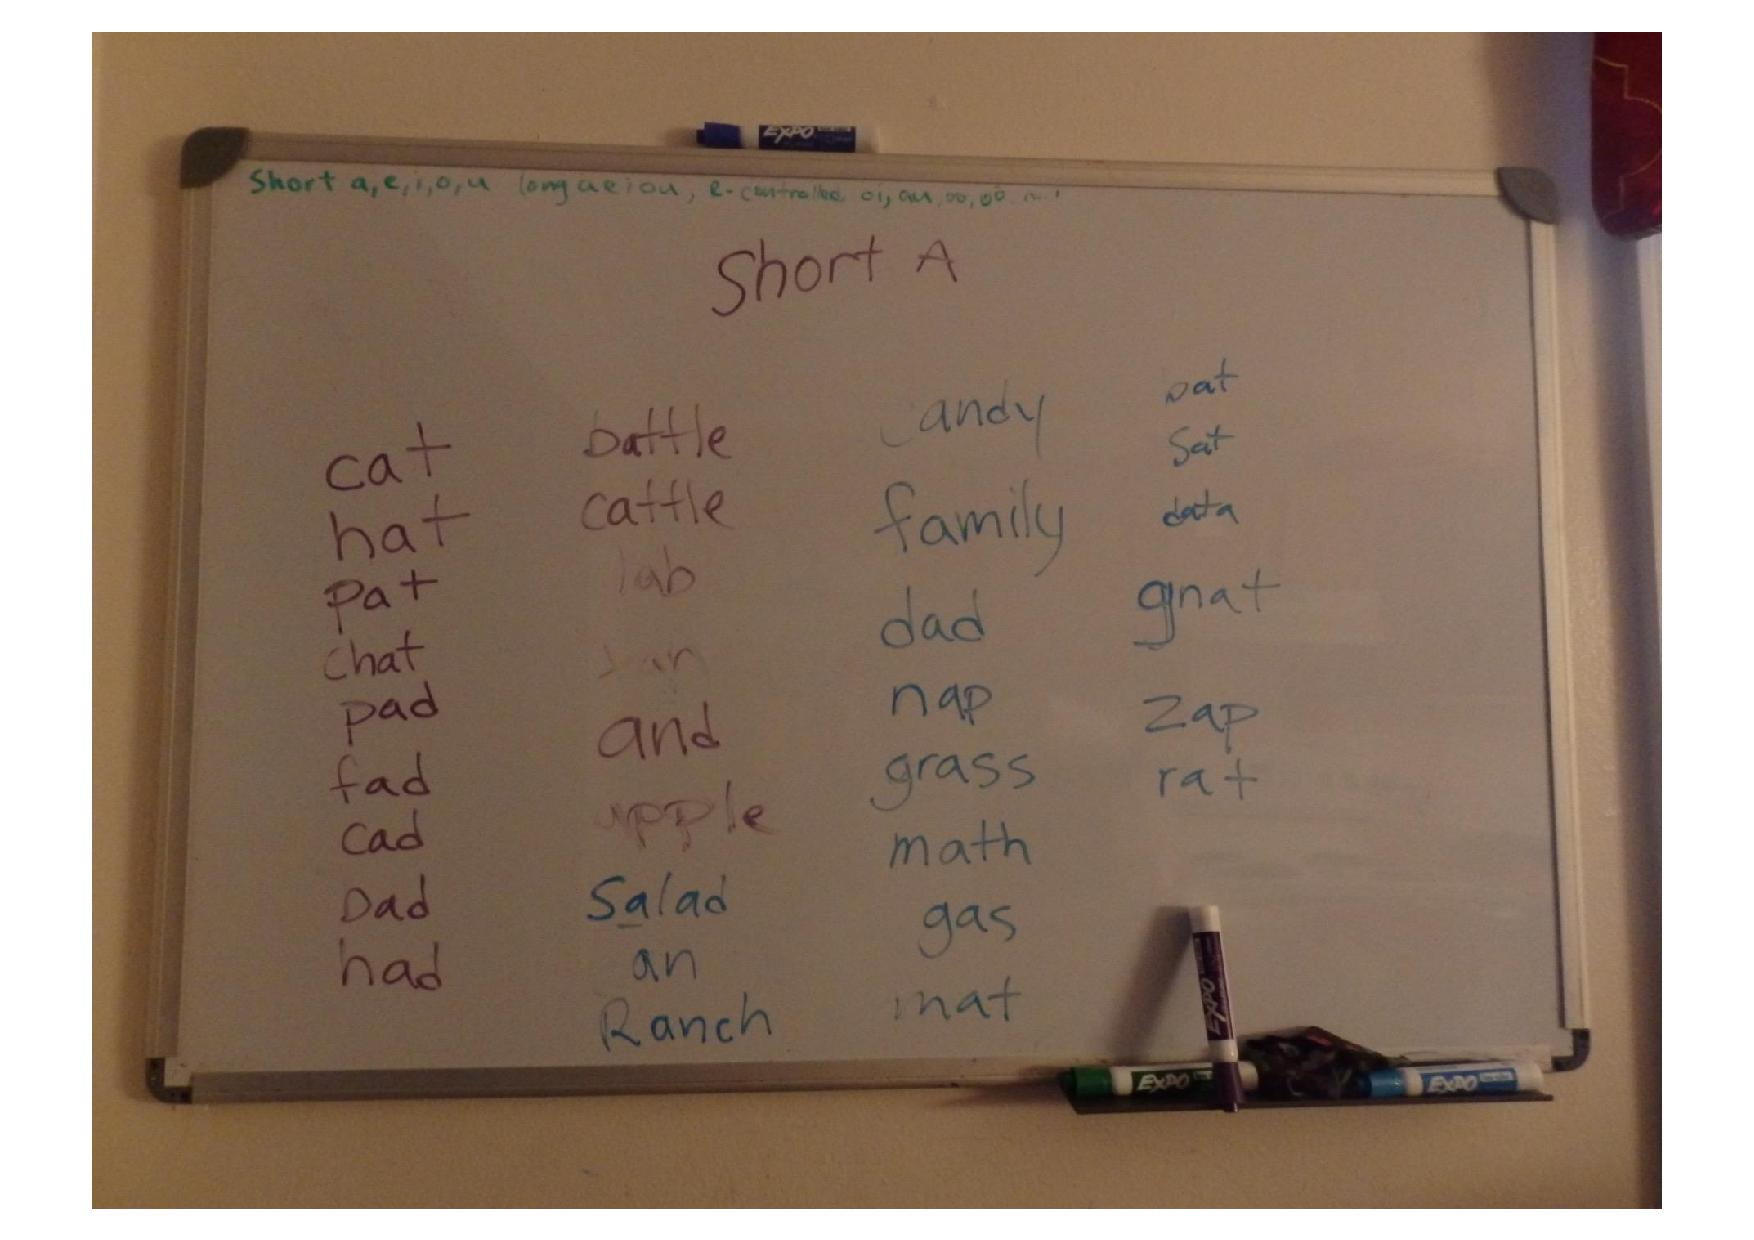 EXPO
Short a,e,i,o,u long a e i o u, r-controlled oi, au, oo, oo
Short A
cat
hat
pat
chat
pad
fad
cad
Dad
had
battle
cattle
lab
and
apple
Salad
an
Ranch
candy
family
dad
nap
grass
math
gas
mat
sat
data
gnat
zap
rat
EXPO
EXPO
EXPO